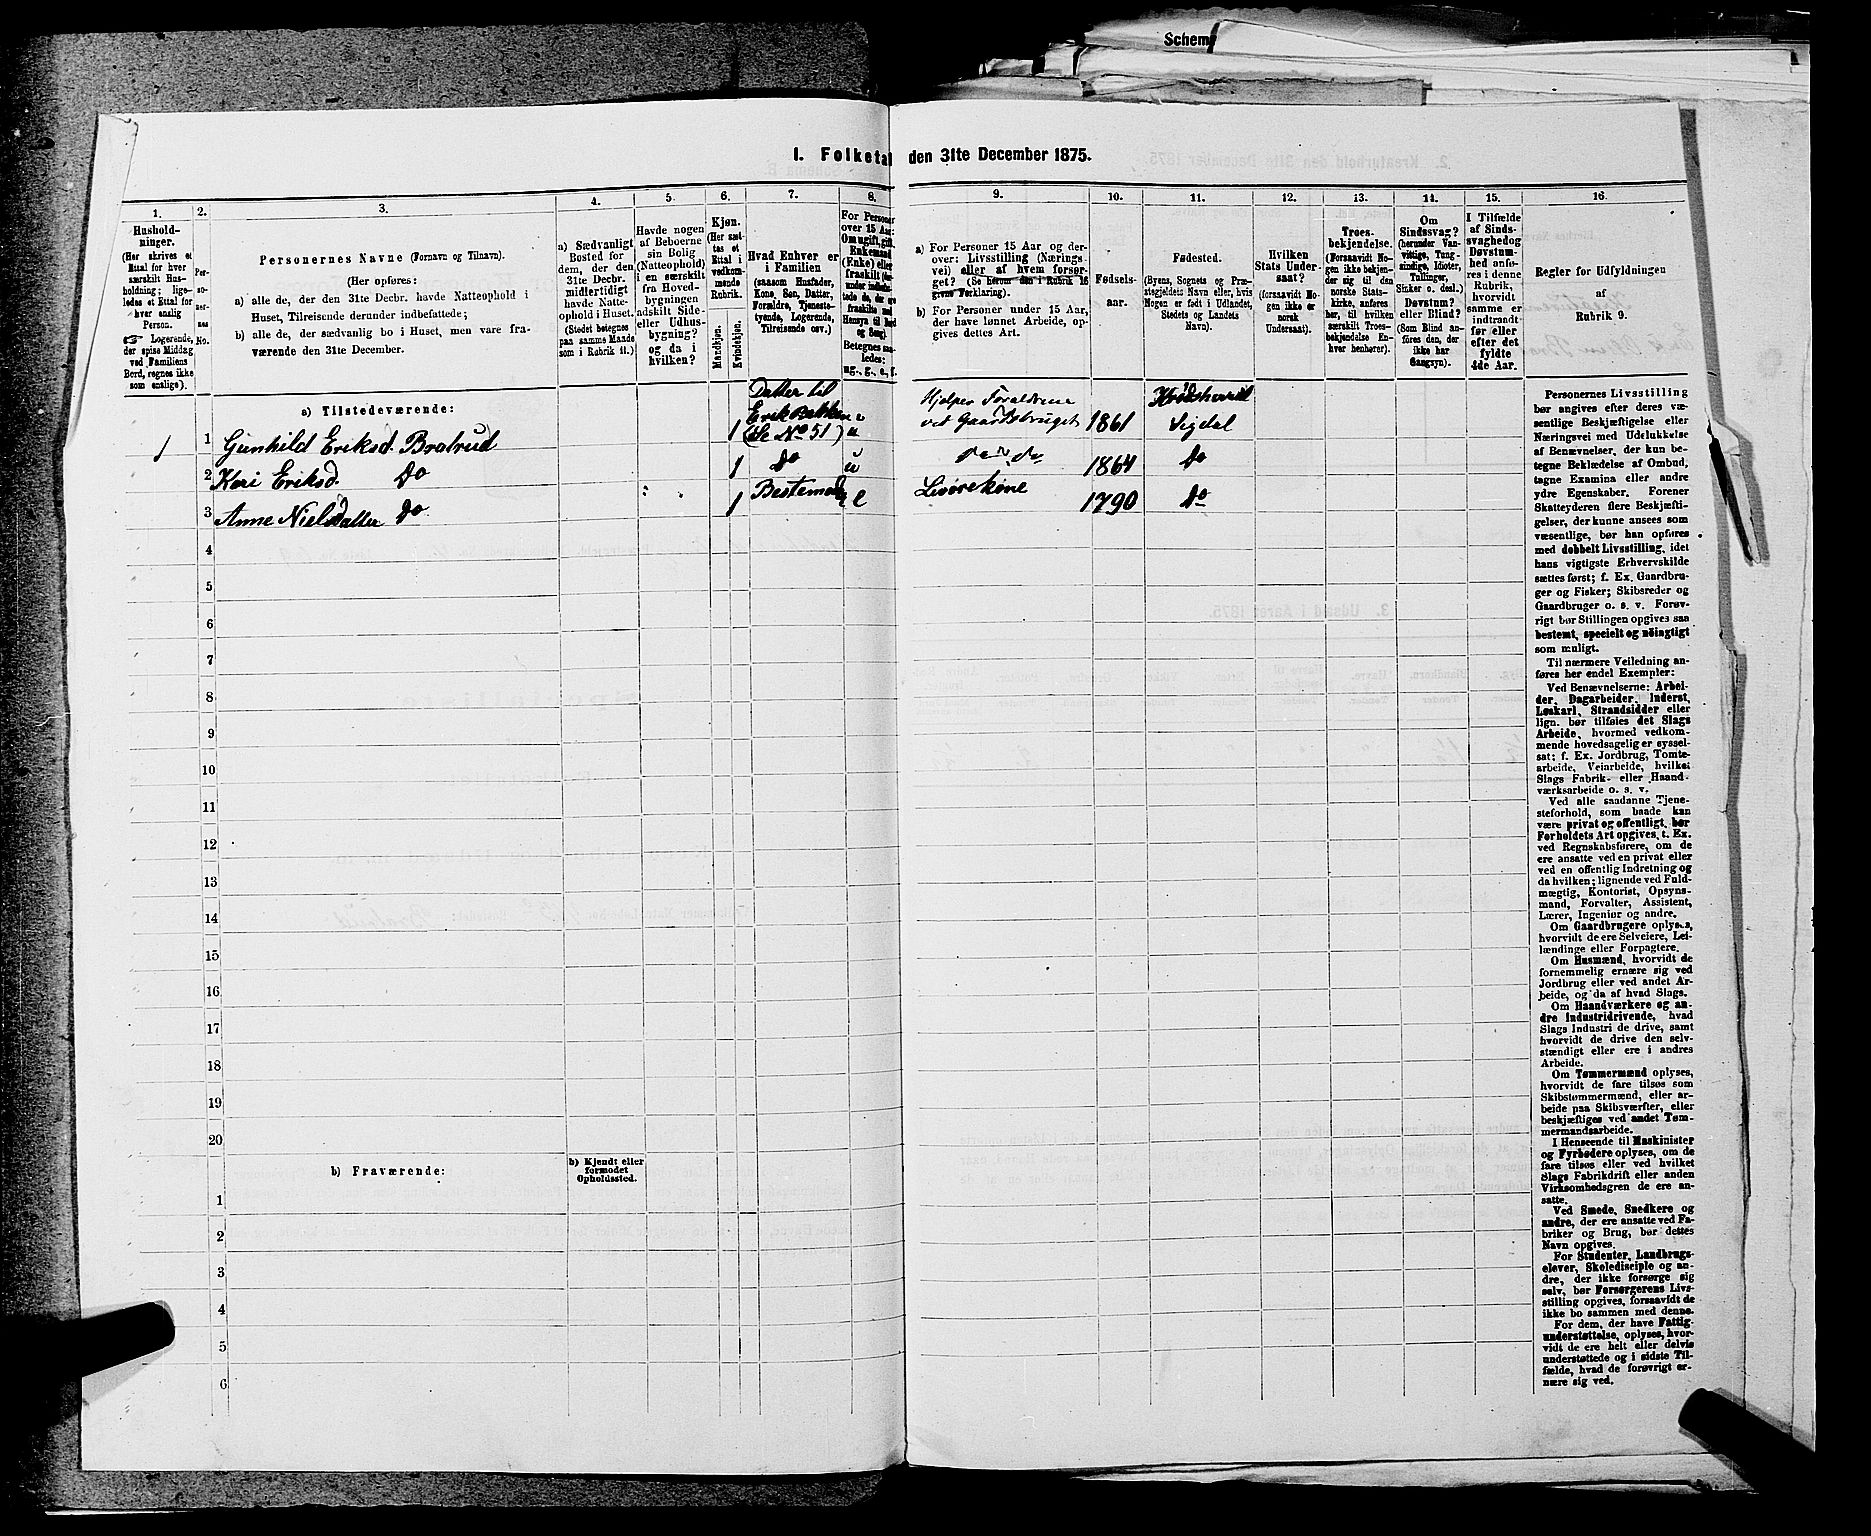 Schem
I. Folketal den 31te December 1875.
1.
Husholdninger.
(Her skrives et Ettal for hver særskilt Husholdning; ligeledes et Ettal for hver enslig Person.
☞ Logerende, der spise Middag ved Familiens Bord, regnes ikke som enslige).
2.
Personernes No.
3.
Personernes Navne (Fornavn og Tilnavn).
(Her opføres:
a) alle de, der den 31te Decbr. havde Natteophold i Huset, Tilreisende derunder indbefattede;
b) alle de, der sædvanlig bo i Huset, men vare fraværende den 31te December.
4.
a) Sædvanligt Bosted for dem, der den 31te Decbr. midlertidigt havde Natteophold i Huset.
(Stedet betegnes paa samme Maade som i Rubrik 11.)
5.
Havde nogen af Beboerne sin Bolig (Natteophold) i en særskilt fra Hovedbygningen adskilt Side- eller Udhusbygning? og da i hvilken?
6.
Kjøn.
(Her sættes et Ettal i vedkommende Rubrik.
Mandkjøn.
Kvindekjøn.
7.
Hvad Enhver er i Familien
(saasom Husfader, Kone, Søn, Datter, Forældre, Tjenestetyende, Logerende, Tilreisende osv.)
8.
For Personer over 15 Aar: Om ugift, gift, Enkemand (Enke) eller fraskilt
Betegnes saaledes: ug., g., e., f.
9.
a) For Personer 15 Aar og derover: Livsstilling (Næringsvei) eller af hvem forsørget? (Se herom den i Rubrik 16 givne Forklaring).
b) For Personer under 15 Aar, der have lønnet Arbeide, opgives dettes Art.
10.
Fødselsaar.
11.
Fødested.
(Byens, Sognets og Præstegjeldets Navn eller, hvis Nogen er født i Udlandet, Stedets og Landets Navn).
12.
Hvilken Stats Undersaat?
(forsaavidt Nogen ikke er norsk Undersaat).
13.
Troesbekjendelse.
(Forsaavidt Nogen ikke bekjender sig til den norske Statskirke, anføres her, til hvilken særskilt Troesbekjendelse Enhver henhører).
14.
Om Sindssvag? (herunder Vanvittige, Tungsindige, Idioter, Tullinger, Sinker o. desl.)
Døvstum? eller Blind? (Som Blind anføres den, der ikke har Gangsyn).
15.
I Tilfælde af Sindssvaghed og Døvstumhed anføres i denne Rubrik, hvorvidt samme er indtraadt før eller efter det fyldte 4de Aar.
16.
Regler for Udfyldningen af Rubrik 9.
a) Tilstedeværende:
1 1 Gunhild Eriksd. Bratrud 1 Datter til Erik Bakken (Se No 51) u Hjelper Forældrene ved Gaardsbruget 1861 Krødsherred Sigdal
2 Kari Eriksd. Do 1 Do u do do 1864 Do
3 Anne Nielsdatter Do 1 Bestemod e 1790 Do
4
5
6
7
8
9
10
11
12
13
14
15
16
17
18
19
20
b) Fraværende:
b) Kjendt eller formodet Opholdssted.
1
2
3
4
5
6
Personernes Livsstilling
bør angives efter deres væ-
sentlige Beskjæftigelse eller
Næringsvei med Udelukkelse
af Benævnelser, der kun be-
tegne Beklædelse af Ombud,
tagne Examina eller andre
ydre Egenskaber. Forener
Skatteyderen flere Beskjæfti-
gelser, der kunne ansees som
væsentlige, bør han opføres
med dobbelt Livsstilling, idet
hans vigtigste Erhvervskilde
sættes først; f. Ex. Gaardbru-
ger og Fisker; Skibsreder og
Gaardbruger o. s. v. Forøv-
rigt bør Stillingen opgives saa
bestemt, specielt og nøiagtigt
som muligt.
Til nærmere Veiledning an-
føres her endel Exempler:
Ved Benævnelserne: Arbei-
der, Dagarbeider, Inderst,
Løskarl, Strandsidder eller
lign. bør tilføies det Slags
Arbeide, hvormed vedkom-
mende hovedsagelig er syssel-
sat; f. Ex. Jordbrug, Tomte-
arbeide, Veiarbeide, hvilket
Slags Fabrik- eller Haand-
værksarbeide o. s. v.
Ved alle saadanne Tjene-
steforhold, som baade kan
være privat og offentligt, bør
Forholdets Art opgives, t. Ex.
ved Regnskabsførere, om de
ere ansatte ved en privat eller
ved en offentlig Indretning og
da hvilken; lignende ved Fuld-
mægtig, Kontorist, Opsyns-
mand, Forvalter, Assistent,
Lærer, Ingeniør og andre.
Om Gaardbrugere oplyses,
hvorvidt de ere Selveiere, Lei-
lændinge eller Forpagtere.
Om Husmænd, hvorvidt de
fornemmelig ernære sig ved
Jordbrug eller ved andet Ar-
beide, og da af hvad Slags.
Om Haandværkere og an-
dre Industridrivende, hvad
Slags Industri de drive, samt
hvorvidt de drive den selv-
stændigt eller ere i andres
Arbeide.
Om Tømmermænd oplyses,
hvorvidt de fare tilsøs som
Skibstømmermænd, eller ar-
beide paa Skibsværfter, eller
beskjæftiges ved andet Tøm-
mermandsarbeide.
I Henseende til Maskinister
og Fyrbødere oplyses, om de
fare tilsøs eller ved hvilket
Slags Fabrikdrift eller anden
Virksomhedsgren de ere an-
satte.
Ved Smede, Snedkere og
andre, der ere ansatte ved Fa-
briker og Brug, bør dettes
Navn opgives.
For Studenter, Landbrugs-
elever, Skoledisciple og an-
dre, der ikke forsørge sig
selv, bør Forsørgerens Livs-
stilling opgives, forsaavidt de
ikke bo sammen med denne.
For dem, der have Fattig-
understøttelse, oplyses, hvor-
vidt de ere helt eller delvis
understøttede og i sidste Til-
fælde, hvad de forøvrigt er-
nære sig ved.